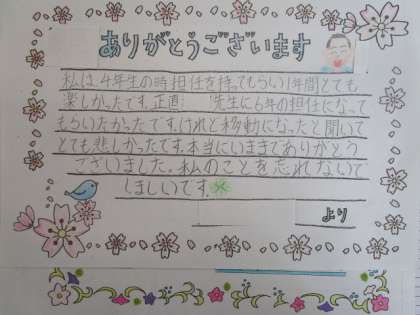 ありがとうございます
私は4年生の時担任を持ってもらい1年間とても
楽しかったです。正直 先生に6年の担任になって
もらいたかったです。けれど移動になったと聞いて
とても悲しかったです。本当にいままでありがとう
ございました。私のことを忘れないで
ほしいです。
より